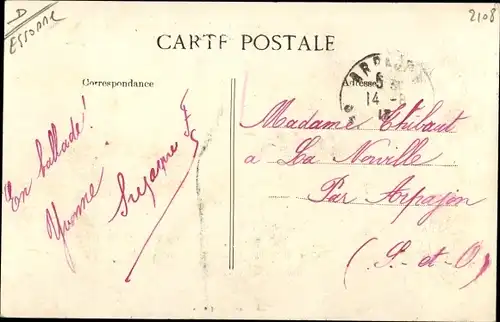 D
ESSONNE
2108
CARTE POSTALE
Correspondance
Adresse
ARPAJON
5
14
En ballade!
Yvonne
Suzanne F
Madame Thibaut
a La Norville
Par Arpajon
(S.-et-O.)